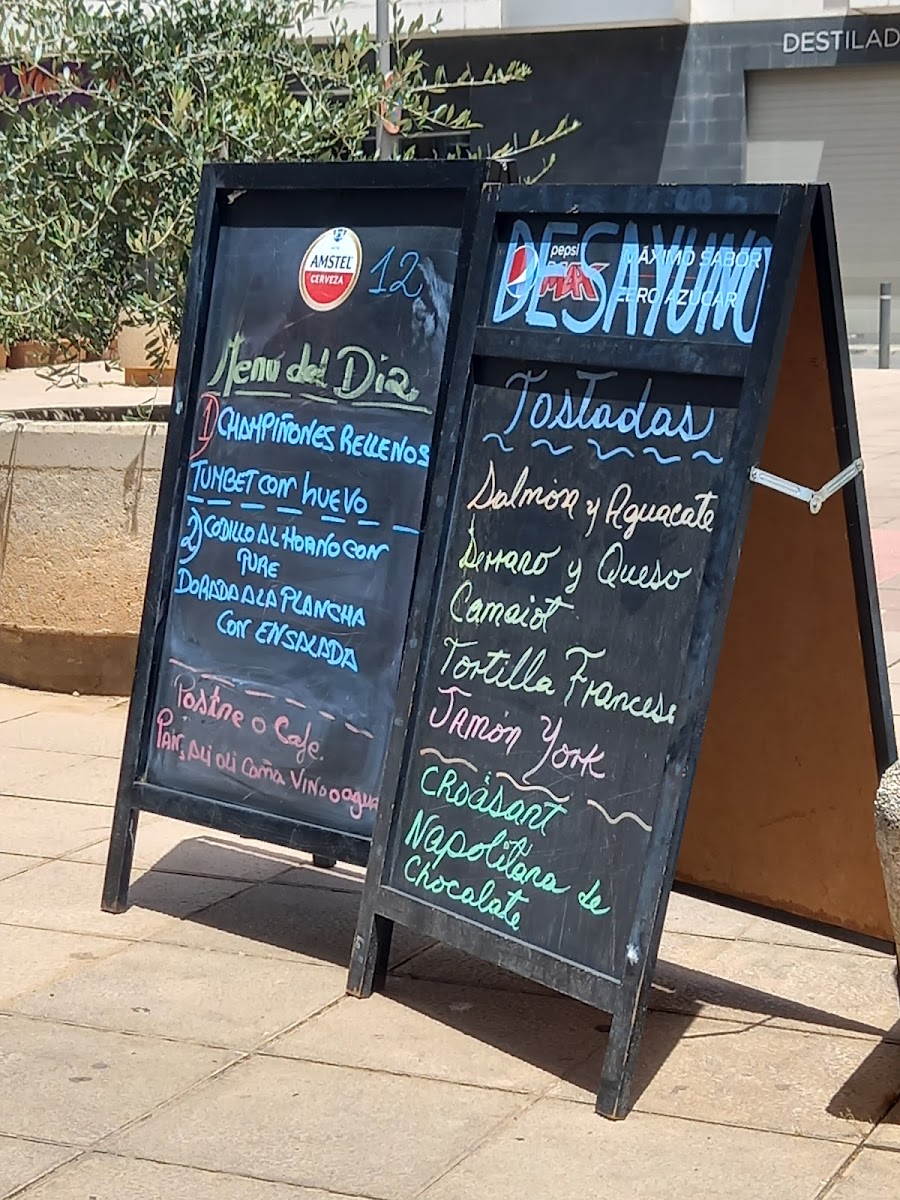 DESTILAD
AMSTEL
CERVEZA
12
Menú del Dia
1) CHAMPIÑONES RELLENOS
TUMBET con huevo
2) CODILLO AL HORNO CON
PURE
DORADA A LA PLANCHA
CON ENSALADA
Postre o Cafe
Pan, ali oli Caña Vino o agua
pepsi
MAX
MÁXIMO SABOR
ZERO AZÚCAR
DESAYUNO
Tostadas
Salmón y Aguacate
Serrano y Queso
Camaiot
Tortilla Francesa
Jamón York
Croásant
Napolitana de
Chocalate